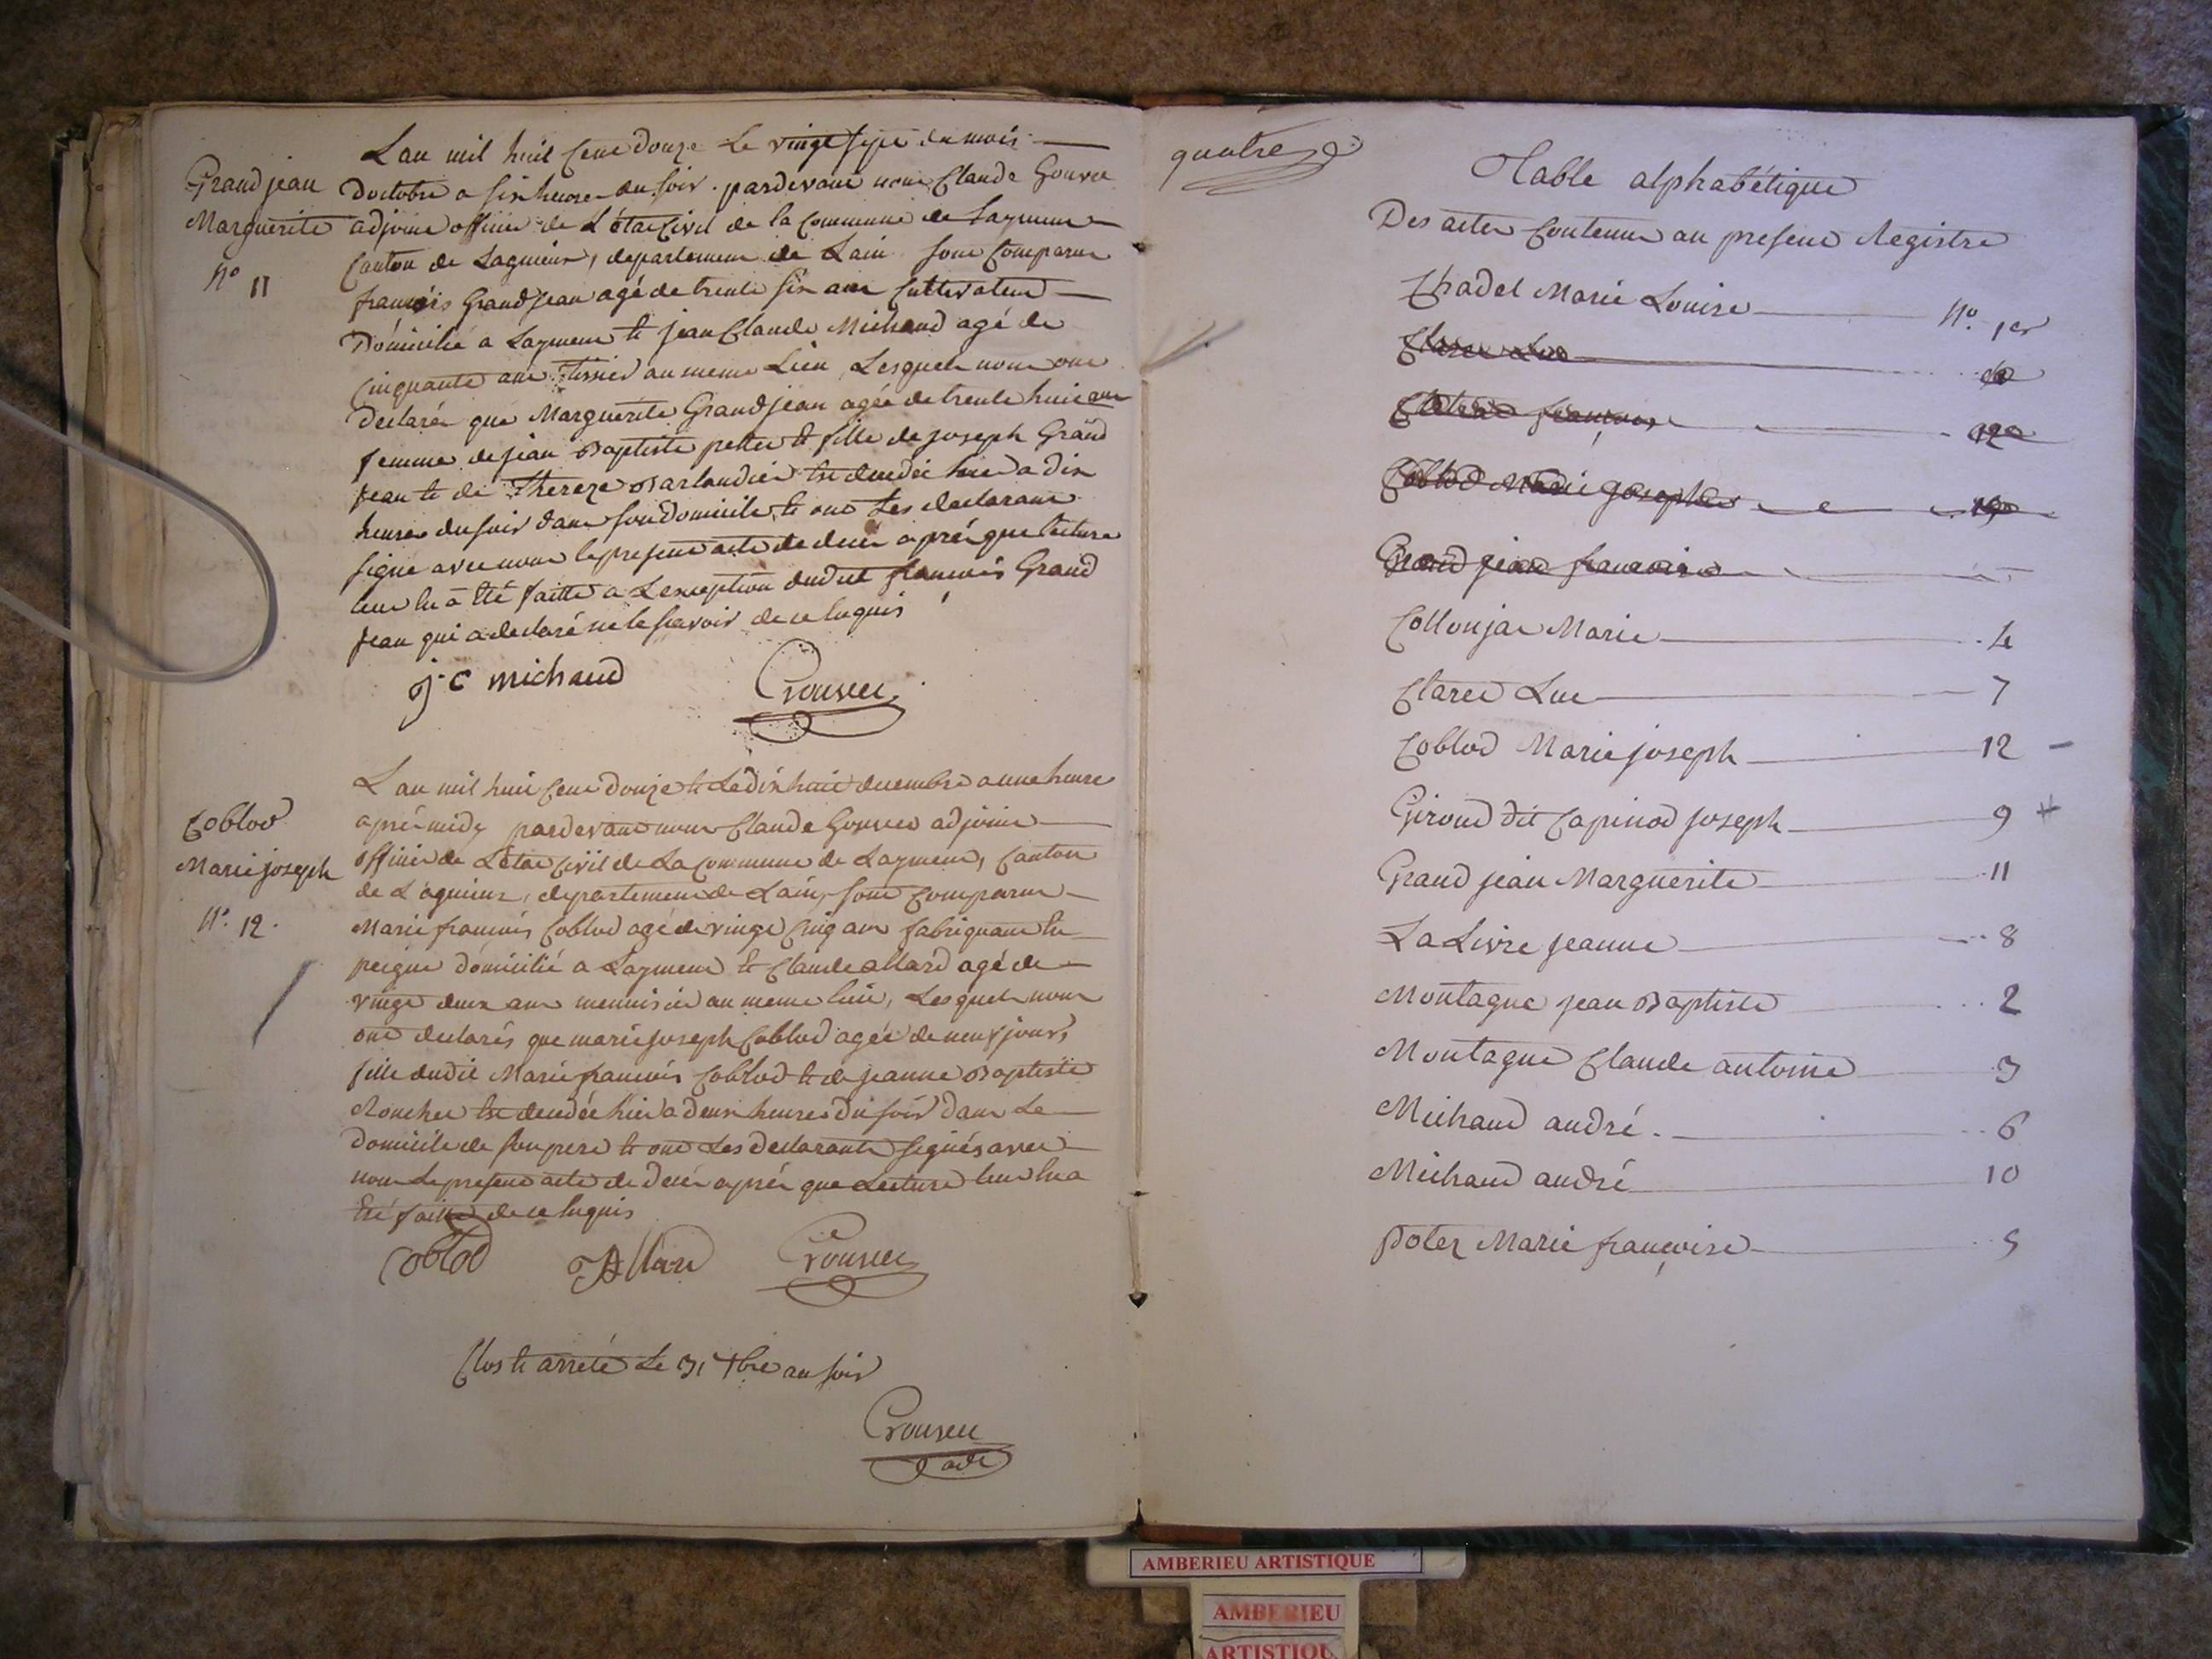 Grand jean
Marguerite
N° 11
Lan mil huit Cent douze Le vingt sept du mois
Doctobre a six heures du soir. pardevant nous Claude Gouvee
adjoint officier de L'état Civil de la Commune de Laymens
Canton de Lagnieux, departement de Lain sont Comparus
francois Grand jean agé de trente six ans Cultivateur
Domicilié a Laymens et jean Claude Michaud agé de
Cinquante ans Tissier au meme Lieu, Lesquels nous ont
Declarés que Marguerite Grand jean agée de trente huit ans
femme de jean Baptiste et fille de joseph Grand
jean et de Thereze Barlandier est decedée hier a dix
heures du soir dans son Domicile, et ont Les declarans
signé avec nous le present acte de decés aprés que lecture
leur en a été faitte a Lexception dudit francois Grand
jean qui a declaré ne le scavoir de ce Enquis
J C michaud
Coblod
Marie joseph
N°. 12.
Lan mil huit Cent douze et Le dix huit decembre a une heure
aprés midy pardevant nous Claude Gouvee adjoint
officier de L'état Civil de La Commune de Laymens, Canton
de Lagnieux, departement de Lain, sont Comparus
Marie francois Coblod agé de vingt Cinq ans fabriquant en
peigne domicilié a Laymens et Claude allard agé de
vingt deux ans menuisier au meme lieu, Lesquels nous
ont declarés que marie joseph Coblod agée de neuf jours,
fille dudit Marie francois Coblod et de jeanne Baptiste
Rouchet est decedée hier a deux heures du soir dans Le
domicile de son pere et ont Les declarants signés avec
nous Le present acte de decés aprés que Lecture leur en a
été faitte de ce Enquis
Coblod Allard
Clos et arreté Le 31 Xbre au soir
adt
quatre
Table alphabétique
Des actes Contenus au present Registre
Chadel Marie Louise N°. 1er
Claret Luc
Coblod francois 12
Coblod Marie josephe
Grand jean francois
Collonjar Marie 4
Claret Luc 7
Coblod Marie joseph 12
Giroud dit Capinod joseph 9
Grand jean Marguerite 11
La Livre jeanne 8
Montagne jean Baptiste 2
Montagne Claude antoine 3
Michaud andré 6
Michaud andré 10
Poter Marie françoise 5
AMBERIEU ARTISTIQUE
AMBERIEU
ARTISTIQU